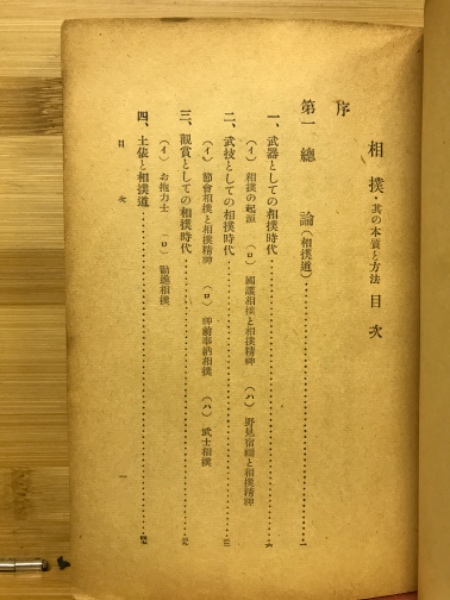 相撲・其の本質と方法 目次
序
第一 總論(相撲道)……一
一、武器としての相撲時代……六
(イ)相撲の起源 (ロ)國護相撲と相撲精神 (ハ)野見宿禰と相撲精神
二、武技としての相撲時代……三
(イ)節會相撲と相撲精神 (ロ)神前奉納相撲 (ハ)武士相撲
三、觀賞としての相撲時代……元
(イ)お抱力士 (ロ)勸進相撲
四、土俵と相撲道……
目次 一